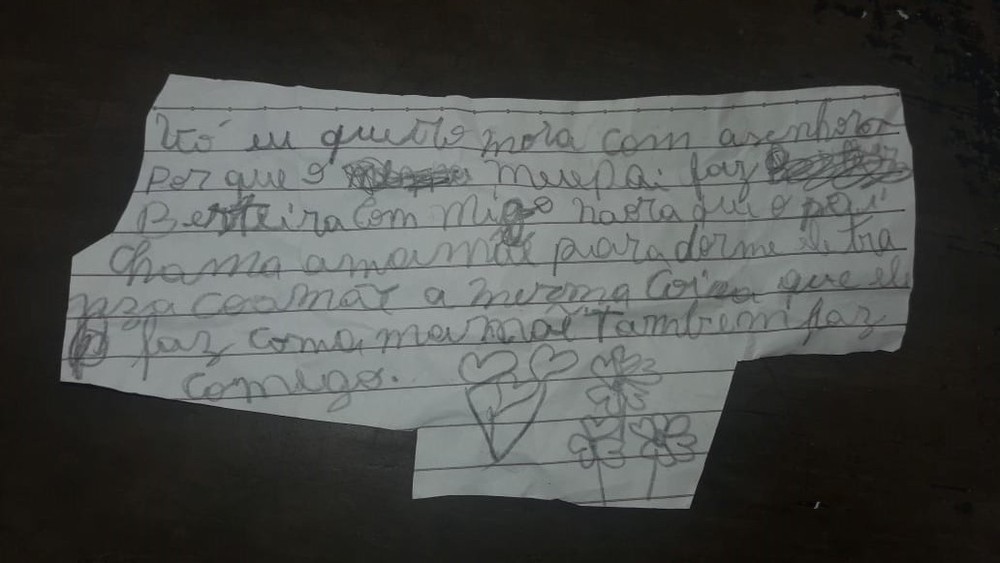 Vó eu quero mora com a senhora
Por que o meu pai faz
Besteira com migo na ora que o papai
chama a mamãe para dorme ele tra
nza coa mãe a mesma coiza que ele
faz com a mamãe tambem faz
comigo.